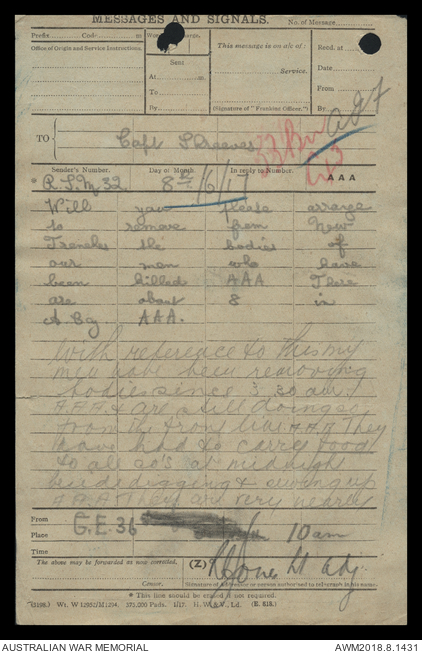 MESSAGES AND SIGNALS.
No. of Message
Prefix Code m
Office of Origin and Service Instructions.
Sent
At m.
To
By
This message is on a/c of:
Service.
(Signature of "Franking Officer.")
Recd. at
Date
From
By
agt
TO Capt Shreaves
33 Bn
Sender's Number. Day of Month In reply to Number. AAA
* R.S.M 32 8th/6/17
Will you please arrange
to remove from New
Trenches the bodies of
our men who have
been killed AAA There
are about 8 in
A. Coy AAA.
With reference to this my
men have been removing
bodies since 3.30 am
AAA & are still doing so
from the front line AAA They
have had to carry food
to all co's at midnight
beside digging &
AAA They are very nearly
From G.E. 36
Place 10 am
Time
The above may be forwarded as now corrected. (Z)
Lt adj.
Censor. Signature of Addressor or person authorised to telegraph in his name.
* This line should be erased if not required.
Wt. W 12952/M1294. 375,000 Pads. 1/17. H. W. & V., Ld. (E. 818.)
AUSTRALIAN WAR MEMORIAL
AWM2018.8.1431